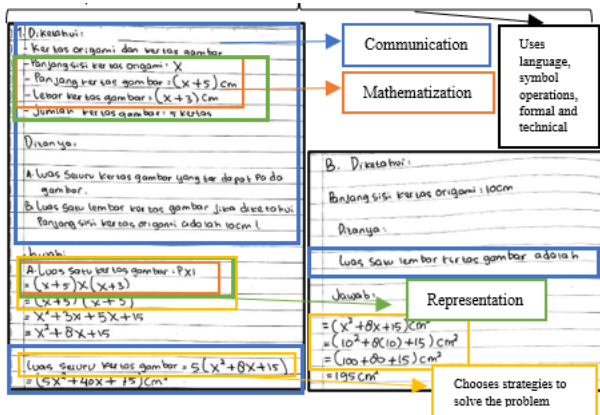 1. Diketahui:
- Kertas origami dan kertas gambar
- Panjang sisi kertas origami : X
- Panjang kertas gambar : (x+5) cm
- Lebar kertas gambar : (x+3) cm
- Jumlah kertas gambar : 5 kertas
Ditanya:
A. Luas seluru kertas gambar yang terdapat Pada
gambar.
B. Luas satu lembar kertas gambar Jika diketahui
Panjang sisi kertas origami adalah 10cm !
Jawab:
A. Luas satu kertas gambar : PXl
= (x+5) X (x+3)
= (x+5) (x+3)
= x²+3x+5x+15
= x²+8x+15
Luas seluru kertas gambar = 5(x²+8x+15)
= (5x²+40x+75) cm²
Communication
Mathematization
Uses
language,
symbol
operations,
formal and
technical
B. Diketahui:
Panjang sisi kertas origami : 10cm
Ditanya:
Luas satu lembar kertas gambar adalah
Representation
Jawab:
= (x²+8x+15) cm²
= (10²+8(10)+15) cm²
= (100+80+15) cm²
= 195 cm²
Chooses strategies to
solve the problem